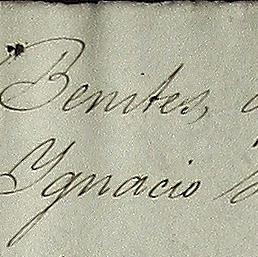 Benites,
Ygnacio